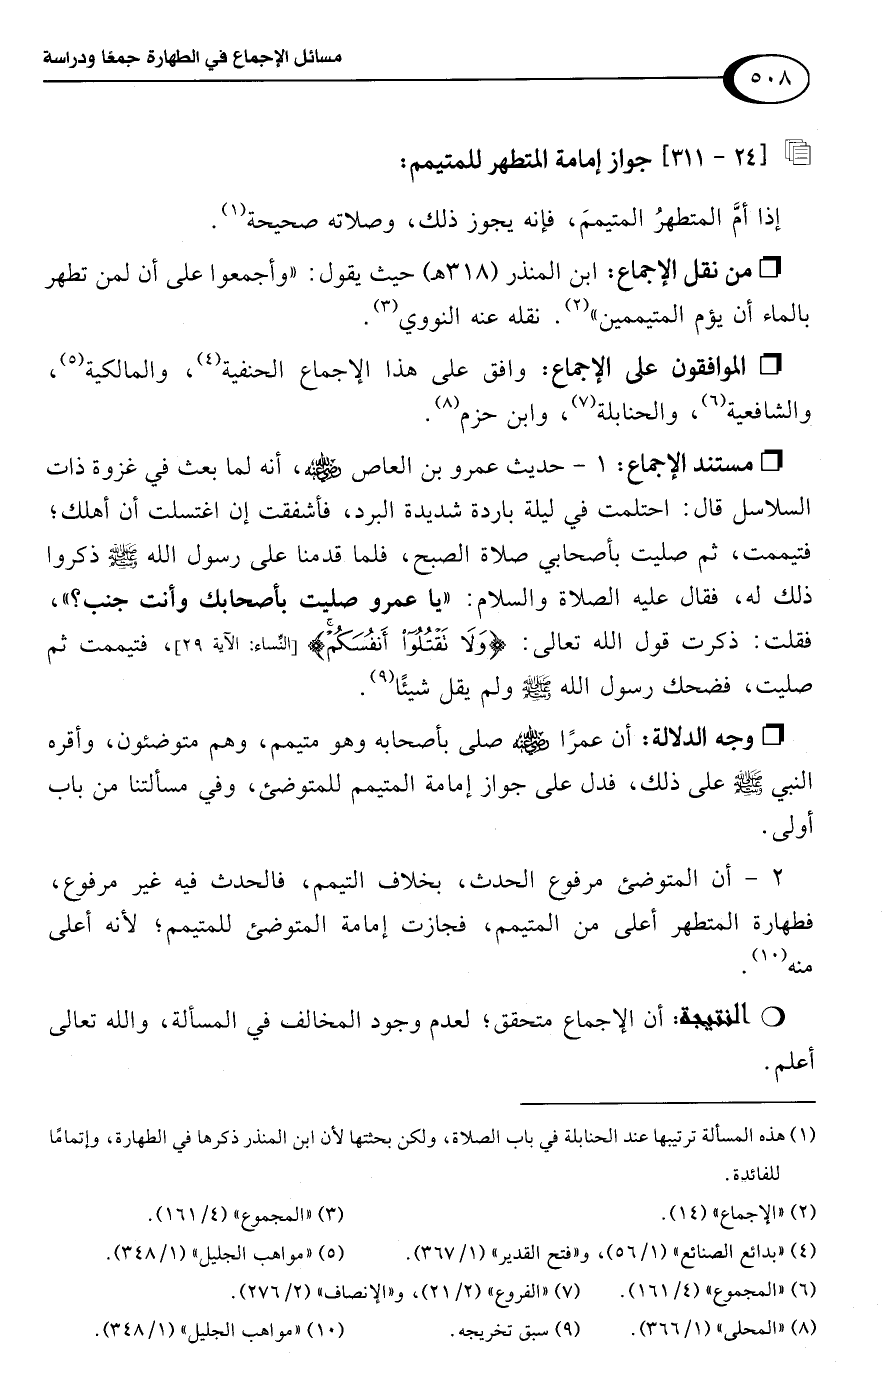 مسائل الإجماع في الطهارة جمعًا ودراسة
٥٠٨
[٢٤ - ٣١١] جواز إمامة المتطهر للمتيمم:
إذا أمَّ المتطهرُ المتيممَ، فإنه يجوز ذلك، وصلاته صحيحة(١).
من نقل الإجماع: ابن المنذر (٣١٨هـ) حيث يقول: «وأجمعوا على أن لمن تطهر
بالماء أن يؤم المتيممين»(٢). نقله عنه النووي(٣).
الموافقون على الإجماع: وافق على هذا الإجماع الحنفية(٤)، والمالكية(٥)،
والشافعية(٦)، والحنابلة(٧)، وابن حزم(٨).
مستند الإجماع: ١ - حديث عمرو بن العاص رضي الله عنه، أنه لما بعث في غزوة ذات
السلاسل قال: احتلمت في ليلة باردة شديدة البرد، فأشفقت إن اغتسلت أن أهلك؛
فتيممت، ثم صليت بأصحابي صلاة الصبح، فلما قدمنا على رسول الله ﷺ ذكروا
ذلك له، فقال عليه الصلاة والسلام: «يا عمرو صليت بأصحابك وأنت جنب؟»،
فقلت: ذكرت قول الله تعالى: ﴿وَلَا نَقْتُلُوٓا۟ أَنفُسَكُمْ﴾ [النِّساء: الآية ٢٩]، فتيممت ثم
صليت، فضحك رسول الله ﷺ ولم يقل شيئًا(٩).
وجه الدلالة: أن عمرًا رضي الله عنه صلى بأصحابه وهو متيمم، وهم متوضئون، وأقره
النبي ﷺ على ذلك، فدل على جواز إمامة المتيمم للمتوضئ، وفي مسألتنا من باب
أولى.
٢ - أن المتوضئ مرفوع الحدث، بخلاف التيمم، فالحدث فيه غير مرفوع،
فطهارة المتطهر أعلى من المتيمم، فجازت إمامة المتوضئ للمتيمم؛ لأنه أعلى
منه(١٠).
النتيجة: أن الإجماع متحقق؛ لعدم وجود المخالف في المسألة، والله تعالى
أعلم.
(١) هذه المسألة ترتيبها عند الحنابلة في باب الصلاة، ولكن بحثتها لأن ابن المنذر ذكرها في الطهارة، وإتمامًا
للفائدة.
(٢) «الإجماع» (١٤). (٣) «المجموع» (٤/ ١٦١).
(٤) «بدائع الصنائع» (١/ ٥٦)، و«فتح القدير» (١/ ٣٦٧). (٥) «مواهب الجليل» (١/ ٣٤٨).
(٦) «المجموع» (٤/ ١٦١). (٧) «الفروع» (٢/ ٢١)، و«الإنصاف» (٢/ ٢٧٦).
(٨) «المحلى» (١/ ٣٦٦). (٩) سبق تخريجه. (١٠) «مواهب الجليل» (١/ ٣٤٨).